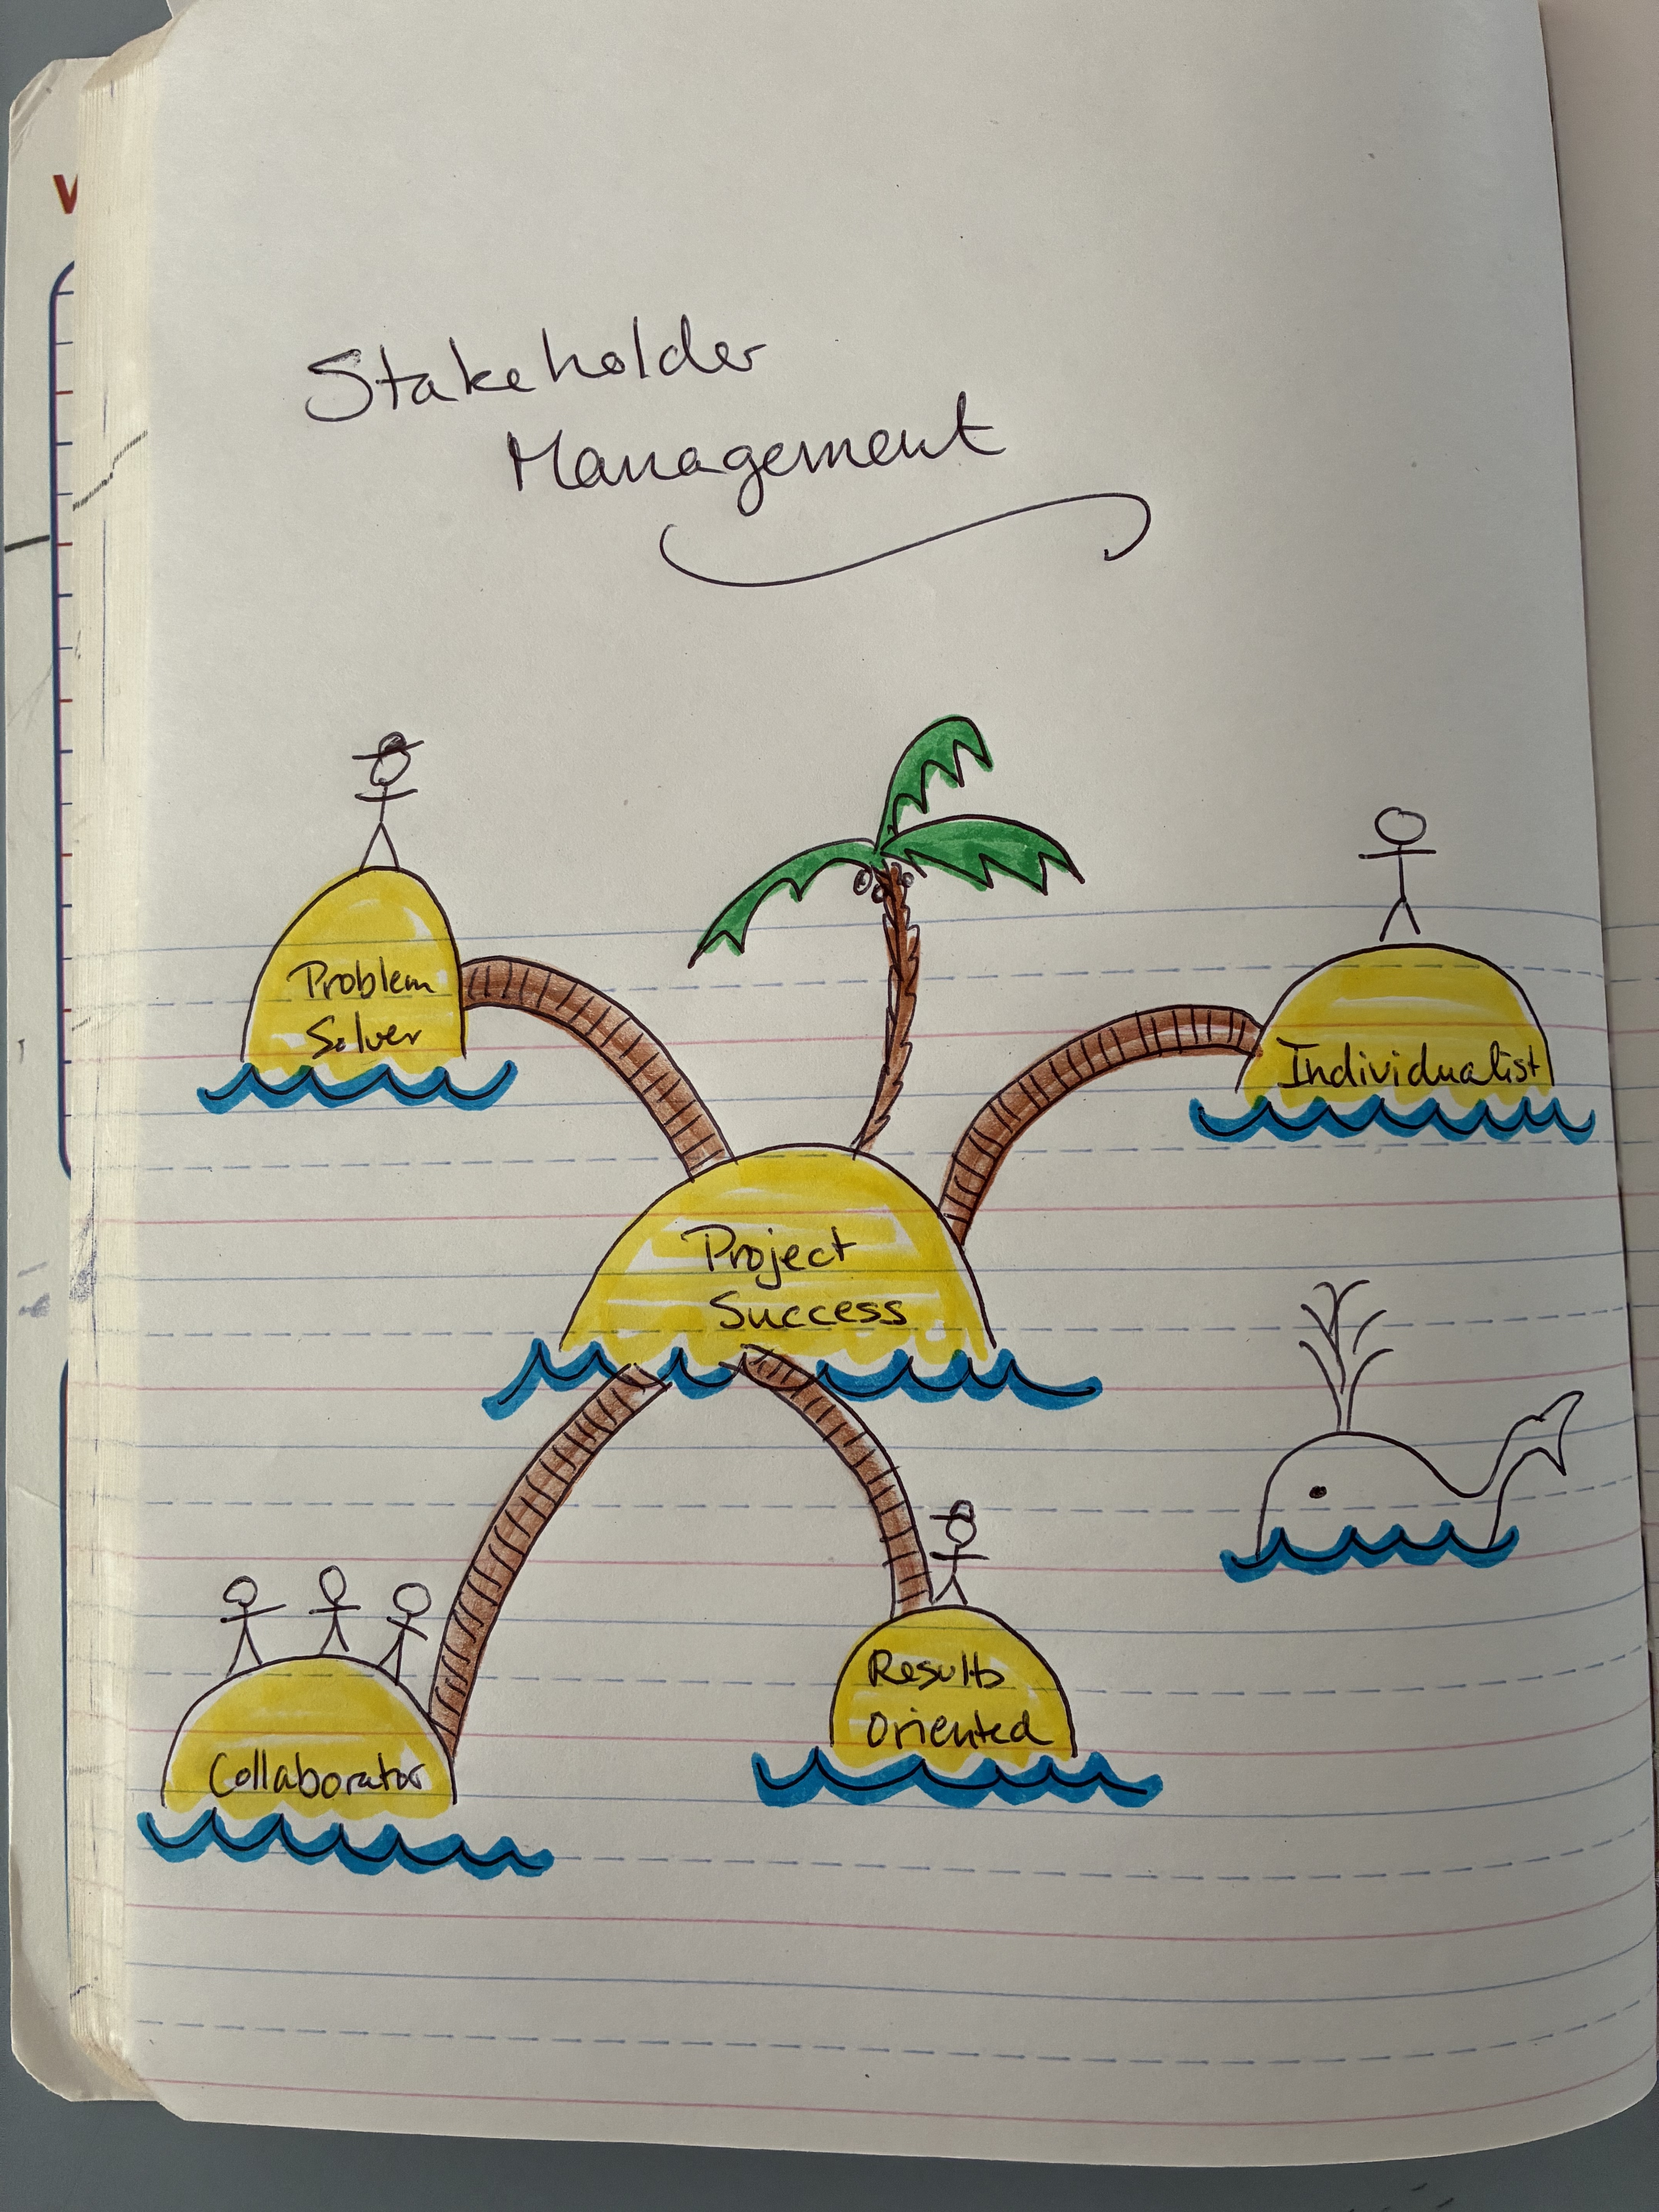 Stakeholder
Management
Problem
Solver
Individualist
Project
Success
Collaborator
Results
Oriented